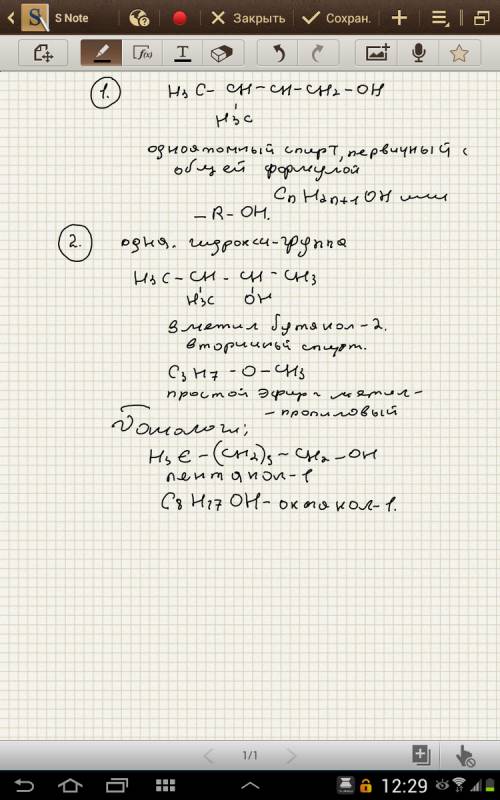 S Note
Закрыть
Сохран.
f(x)
T
1. H3C - CH - CH - CH2 - OH
H3C
одноатомный спирт, первичный с
общей формулой
CnH2n+1OH или
- R - OH.
2. одна. гидрокси-группа
H3C - CH - CH - CH3
H3C OH
3 метил бутанол-2.
вторичный спирт.
C3H7 - O - CH3
простой эфир - метил-
- пропиловый
Гомологи;
H3C - (CH2)3 - CH2 - OH
пентанол-1
C8H17OH - октанол-1.
1/1
12:29